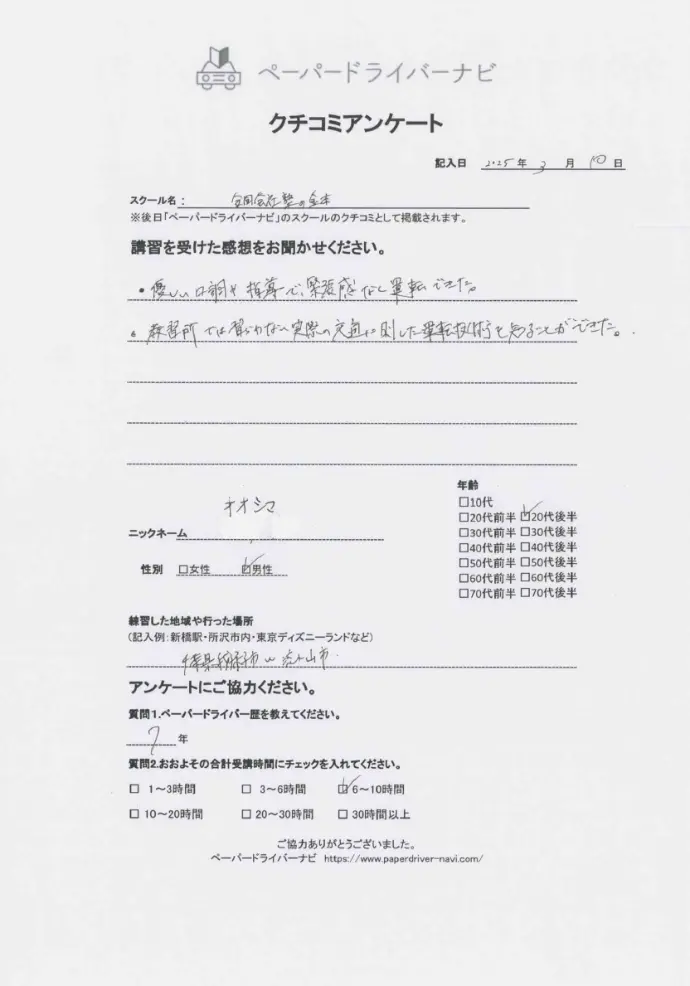 ペーパードライバーナビ
クチコミアンケート
記入日 2025年 3 月 10 日
スクール名:
※後日「ペーパードライバーナビ」のスクールのクチコミとして掲載されます。
講習を受けた感想をお聞かせください。
・優しい口調や指導で、緊張感なし運転できた。
・教習所では習わない実際の交通に則した運転技術を知ることができた。
年齢
□10代
□20代前半 ☑20代後半
□30代前半 □30代後半
□40代前半 □40代後半
□50代前半 □50代後半
□60代前半 □60代後半
□70代前半 □70代後半
ニックネーム オオシマ
性別 □女性 ☑男性
練習した地域や行った場所
(記入例:新橋駅・所沢市内・東京ディズニーランドなど)
千葉県我孫子市〜流山市
アンケートにご協力ください。
質問1.ペーパードライバー歴を教えてください。
7 年
質問2.おおよその合計受講時間にチェックを入れてください。
□ 1～3時間 □ 3～6時間 ☑ 6～10時間
□ 10～20時間 □ 20～30時間 □ 30時間以上
ご協力ありがとうございました。
ペーパードライバーナビ https://www.paperdriver-navi.com/